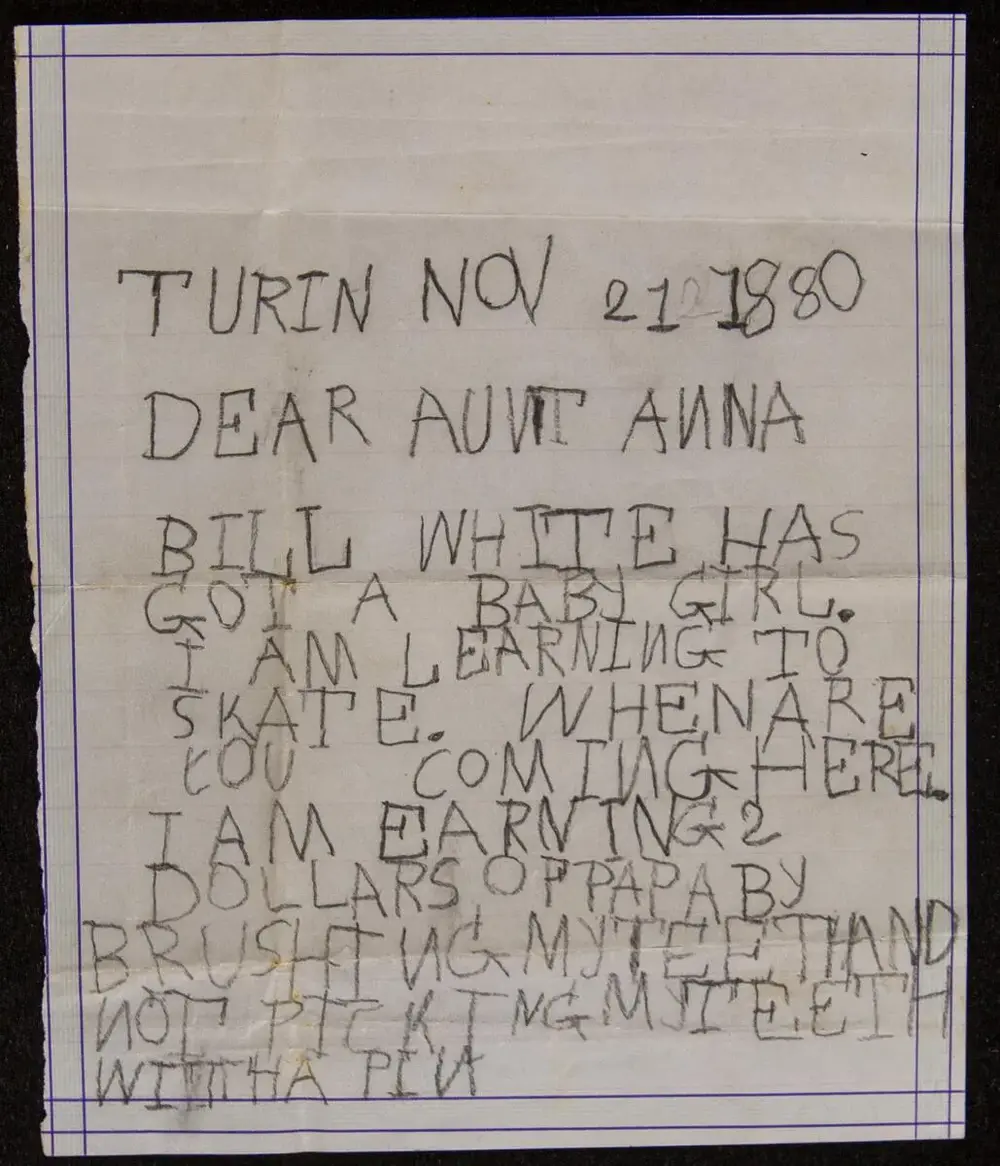 TURIN NOV 21 1880
DEAR AUNT ANNA
BILL WHITE HAS
GOT A BABY GIRL.
I AM LEARNING TO
SKATE. WHEN ARE
YOU COMING HERE.
I AM EARNING 2
DOLLARS OF PAPA BY
BRUSHING MY TEETH AND
NOT PICKING MY TEETH
WITH A PIN